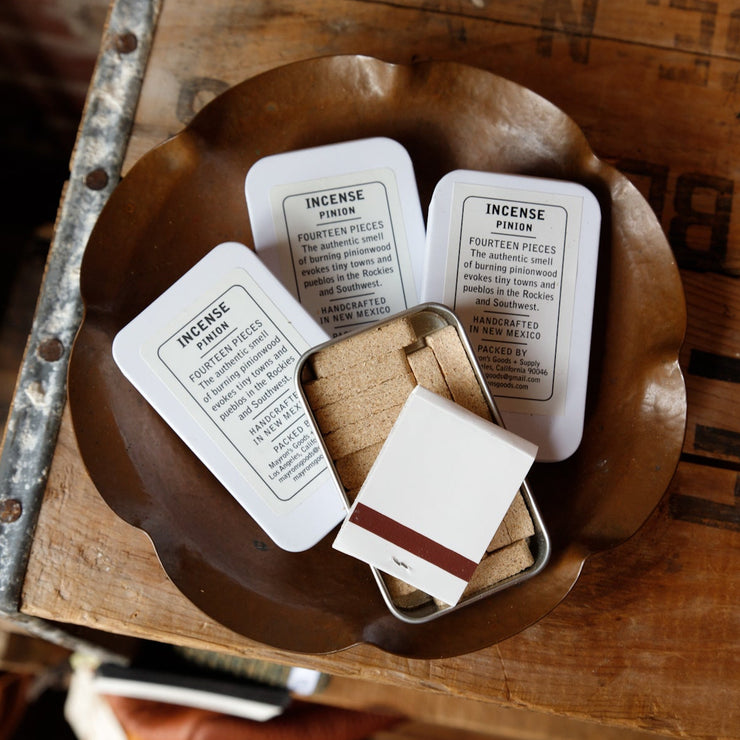 INCENSE
PINION
FOURTEEN PIECES
The authentic smell
of burning pinionwood
evokes tiny towns and
pueblos in the Rockies
and Southwest.
HANDCRAFTED
IN NEW MEXICO
INCENSE
PINION
FOURTEEN PIECES
The authentic smell
of burning pinionwood
evokes tiny towns and
pueblos in the Rockies
and Southwest.
HANDCRAFTED
IN NEW MEXICO
PACKED BY
Goods + Supply
California 90046
goods@gmail.com
goods.com
INCENSE
PINION
FOURTEEN PIECES
The authentic smell
of burning pinionwood
evokes tiny towns and
pueblos in the Rockies
and Southwest.
HANDCRAFTED
IN NEW MEXICO
PACKED BY
Mayron's Goods
Los Angeles,
mayrons